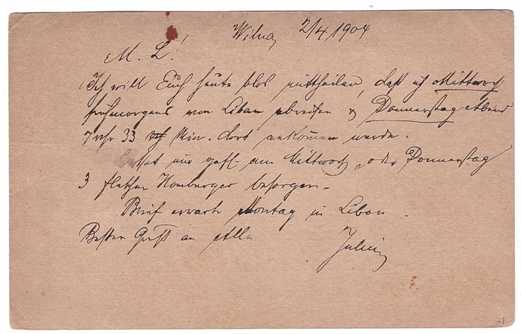 Wilna, 2/4 1904
M. L.!
Ich will Euch heute blos mittheilen, daß ich Mittwoch
frühmorgens von Libau abreisen & Donnerstag Abend
7 Uhr 33 Min. dort ankommen werde.
am Mittwoch oder Donnerstag
3 Homburger besorgen.
Brief erwarte Montag in Libau.
Besten Gruß an Alle
Julius